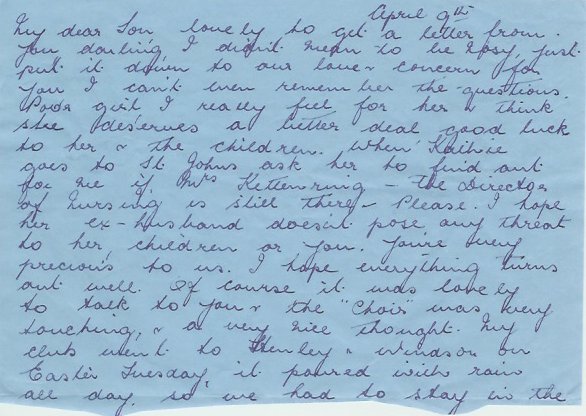 April 9th
My dear Son lovely to get a letter from
you darling I didn't mean to be nosy, just
put it down to our love & concern for
you I can't even remember the questions.
Poor girl I really feel for her & think
she deserves a better deal good luck
to her & the children. When Kathie
goes to St Johns ask her to find out
for me if Mrs Kettenring - the Director
of Nursing is still there - Please. I hope
her ex-husband doesn't pose any threat
to her, children or you. You're very
precious to us. I hope everything turns
out well. Of course it was lovely
to talk to you & the "Choir" was very
touching, & a very nice thought. My
club went to Henley & Windsor on
Easter Tuesday, it poured with rain
all day, so we had to stay in the